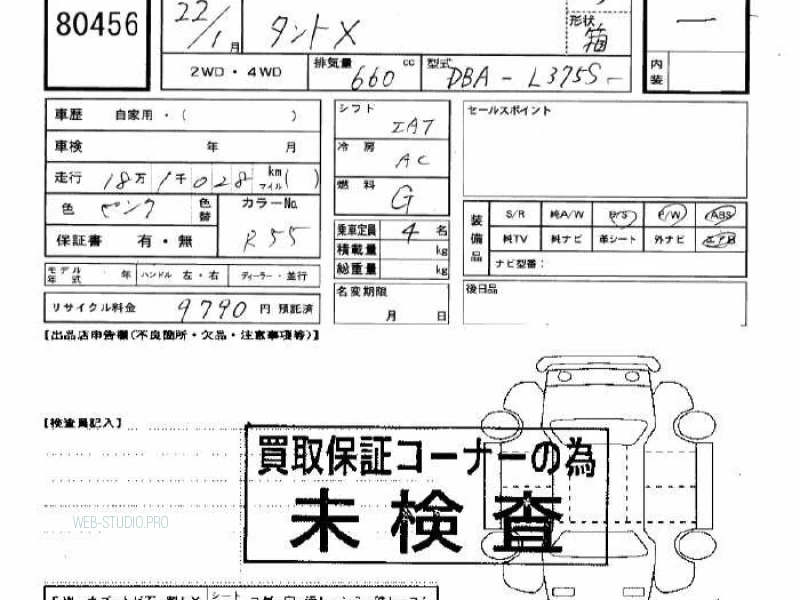 80456
22/1月
タントX
形状
箱
内装
2WD・4WD
排気量 660 cc
型式 DBA-L375S
車歴 自家用・( )
車検 年 月
走行 18万1千028 km マイル( )
色 ピンク 色替 カラーNo. R55
保証書 有・無
モデル年式 年 ハンドル 左・右 ディーラー・並行
リサイクル料金 9790 円 預託済
シフト IAT
冷房 AC
燃料 G
乗車定員 4 名
積載量 kg
総重量 kg
名変期限
月 日
セールスポイント
装備品 S/R 純A/W P/S P/W ABS
純TV 純ナビ 革シート 外ナビ エアB
ナビ型番:
後日品
【出品店申告欄(不良箇所・欠品・注意事項等)】
【検査員記入】
買取保証コーナーの為
未検査
WEB-STUDIO.PRO